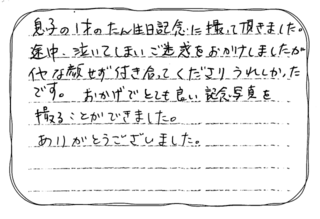 息子の1才のたん生日記念に撮って頂きました。
途中、泣いてしまいご迷惑をおかけしましたが
イヤな顔せず付き合ってくださり、うれしかった
です。 おかげでとても良い記念写真を
撮ることができました。
ありがとうございました。